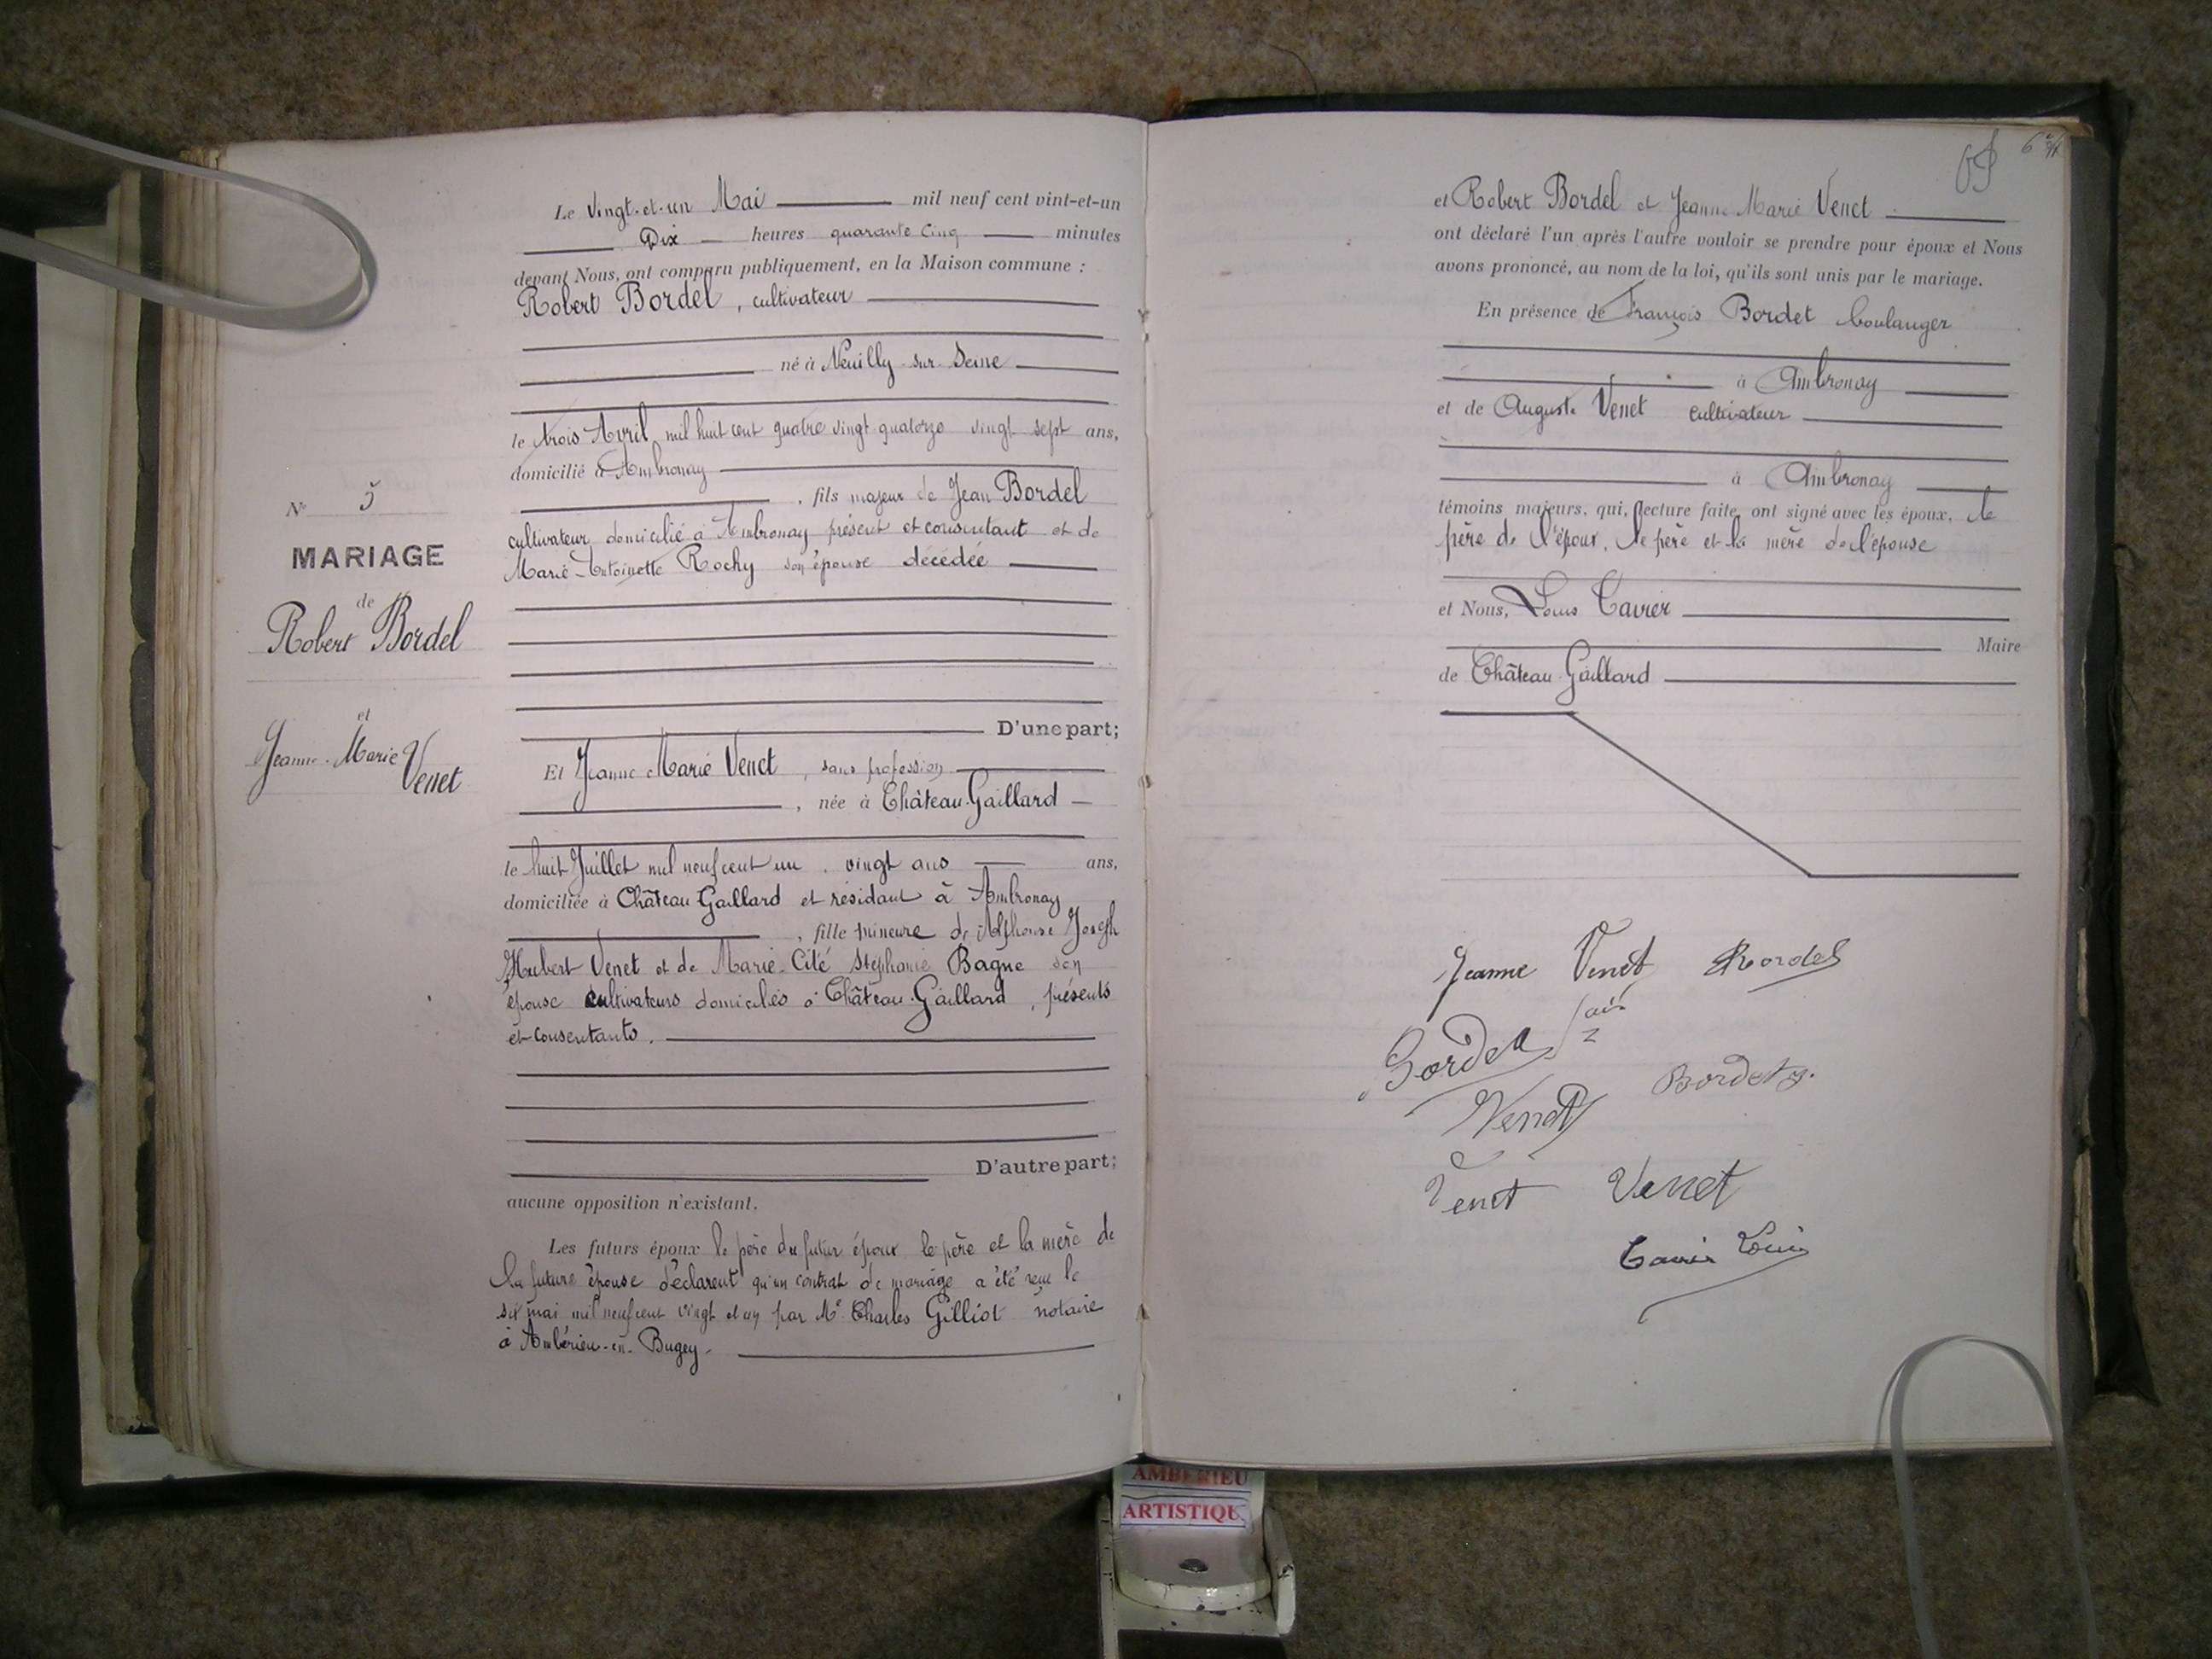 N° 5
MARIAGE
de
Robert Bordel
et
Jeanne-Marie
Venet
Le Vingt-et-un Mai mil neuf cent vint-et-un
Dix heures quarante cinq minutes
devant Nous, ont comparu publiquement, en la Maison commune :
Robert Bordel, cultivateur
né à Neuilly-sur-Seine
le trois Avril mil huit cent quatre vingt quatorze vingt sept ans,
domicilié à Ambronay
, fils majeur de Jean Bordel
cultivateur domicilié à Ambronay présent et consentant et de
Marie-Antoinette Rochy son épouse décédée
D'une part;
Et Jeanne Marie Venet, sans profession
, née à Château-Gaillard
le huit Juillet mil neuf cent un, vingt ans ans,
domiciliée à Château Gaillard et résidant à Ambronay
, fille mineure de Alphonse Joseph
Hubert Venet et de Marie Stéphanie Bagne son
épouse cultivateurs domiciliés à Château-Gaillard, présents
et consentants.
D'autre part;
aucune opposition n'existant.
Les futurs époux le père du futur époux le père et la mère de
la future épouse déclarent qu'un contrat de mariage a été reçu le
mai mil neuf cent vingt et un par Me Charles Gilliot notaire
à Ambérieu-en-Bugey.
et Robert Bordel et Jeanne Marie Venet
ont déclaré l'un après l'autre vouloir se prendre pour époux et Nous
avons prononcé, au nom de la loi, qu'ils sont unis par le mariage.
En présence de François Bordet boulanger
à Ambronay
et de Auguste Venet cultivateur
à Ambronay
témoins majeurs, qui, lecture faite, ont signé avec les époux, le
père de l'époux, le père et la mère de l'épouse
et Nous, Louis Cavier
Maire
de Château-Gaillard
Jeanne Venet Bordel
Venet Bordet
Venet Venet
Cavier Louis
AMBERIEU
ARTISTIQUE